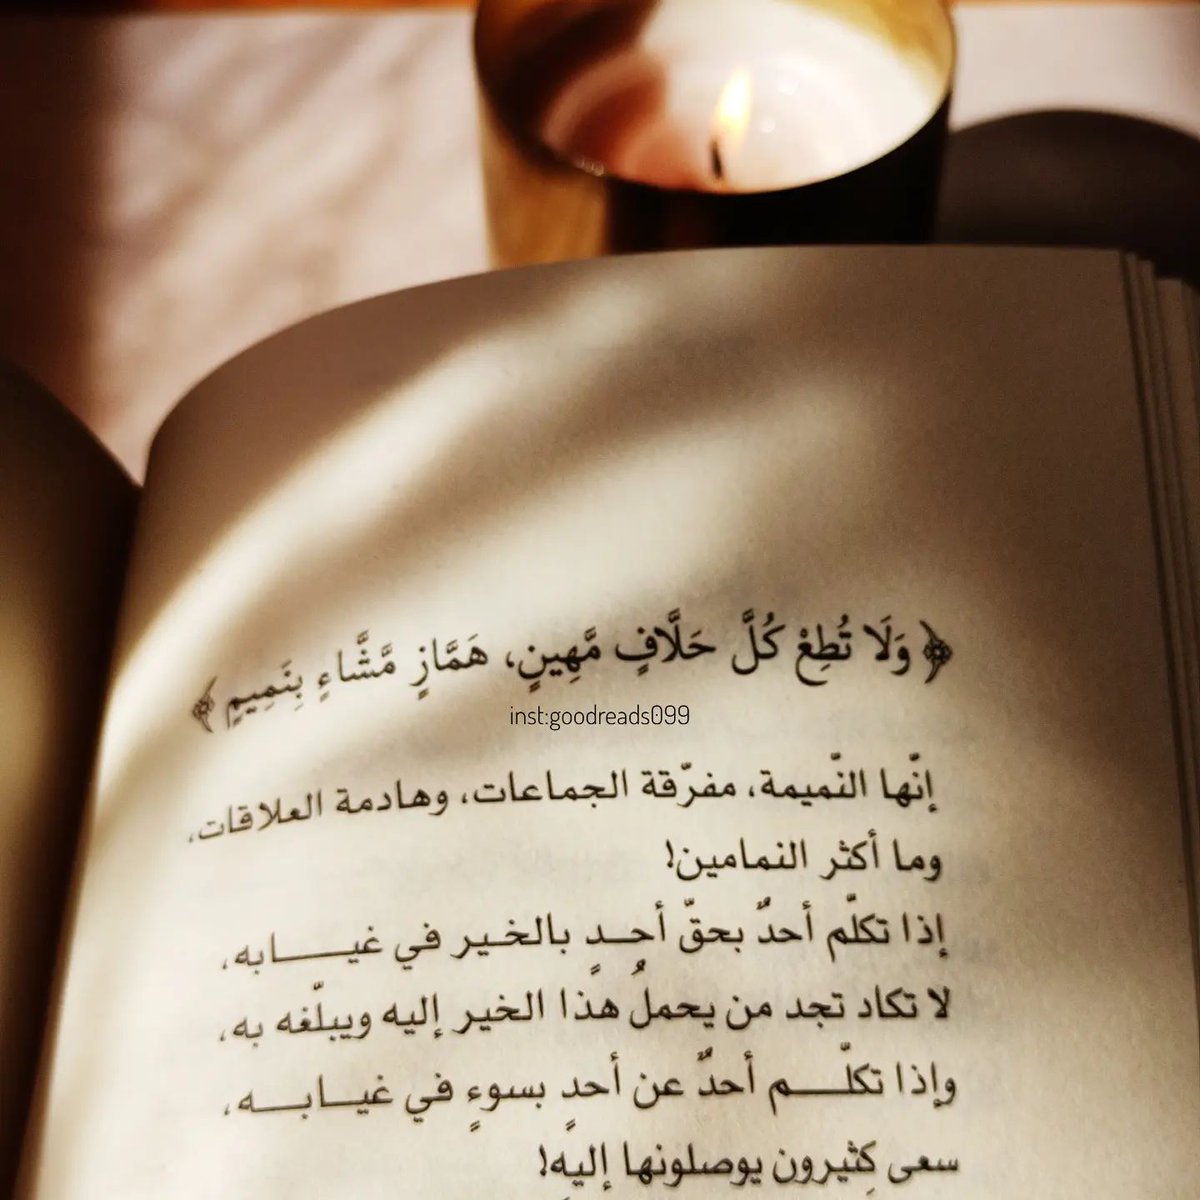 ﴿ وَلَا تُطِعْ كُلَّ حَلَّافٍ مَّهِينٍ، هَمَّازٍ مَّشَّاءٍ بِنَمِيمٍ ﴾
inst:goodreads099
إنّها النّميمة، مفرّقة الجماعات، وهادمة العلاقات،
وما أكثر النمامين!
إذا تكلّم أحدٌ بحقّ أحـدٍ بالخـير في غيـــــابه،
لا تكاد تجد من يحملُ هذا الخير إليه ويبلّغه به،
وإذا تكلّـــــم أحدٌ عن أحدٍ بسوءٍ في غيـابـــه،
سعى كثيرون يوصلونها إليه!